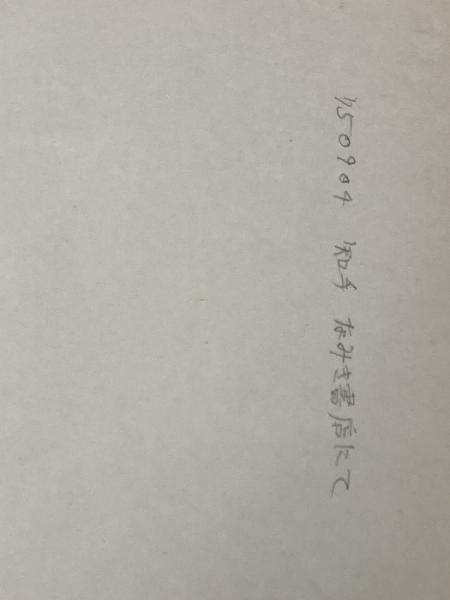 '150904 知手 なみき書店にて